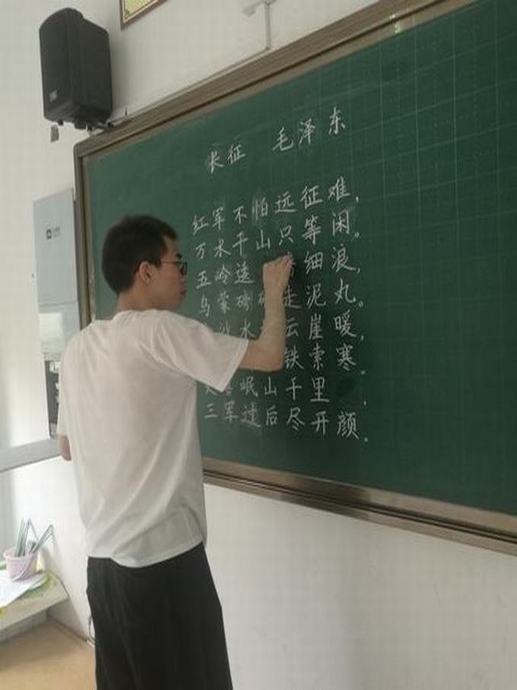 长征 毛泽东
红军不怕远征难，
万水千山只等闲。
五岭逶细浪，
乌蒙磅走泥丸。
沙水云崖暖，
铁索寒。
岷山千里，
三军过后尽开颜。